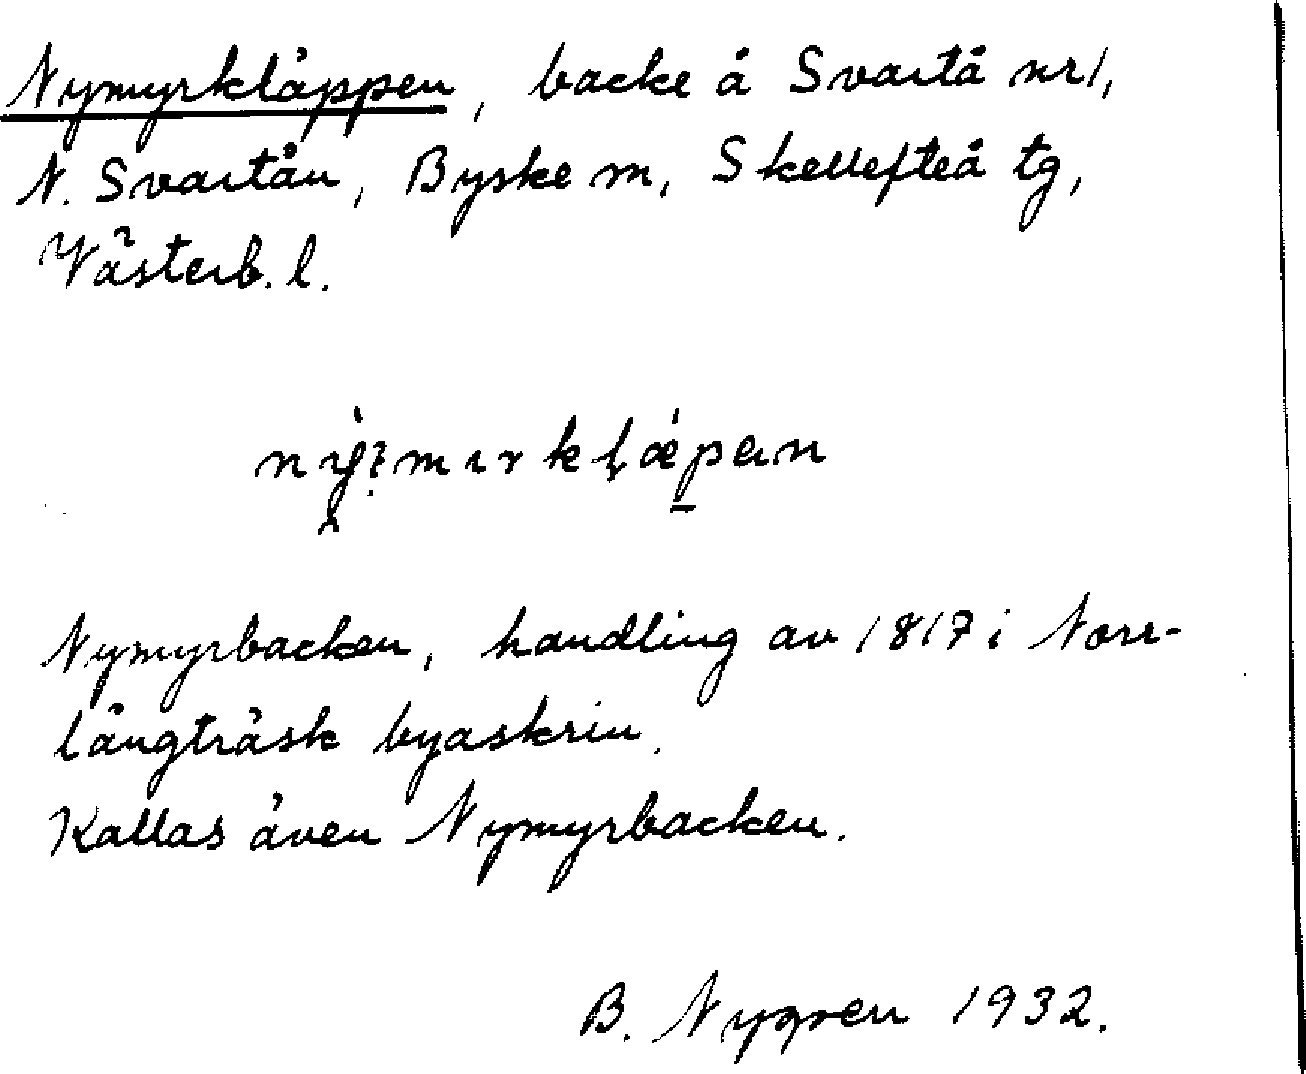 Nymyrkläppen, backe å Svartå nr 1,
N. Svartån, Byske m, Skellefteå tg,
Västerb. l.
Nymyrbacken, handling av 1817 i Norr-
långträsk byaskrin.
Kallas även Nymyrbacken.
B. Nygren 1932.